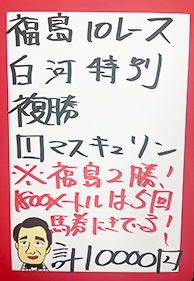 福島10レース
白河特別
複勝
①マスキュリン
※福島2勝!
1800メートルは5回
馬券にきている!
計10000円